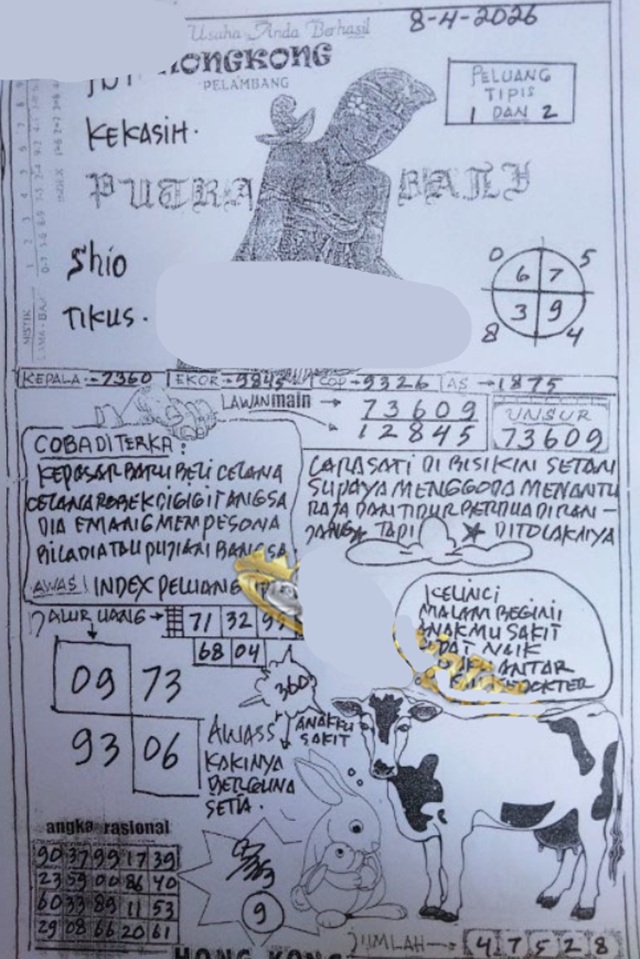 Usaha Anda Berhasil
8-4-2026
HONGKONG
PELAMBANG
PELUANG
TIPIS
1 DAN 2
KEKASIH.
PUTRA BALI
Shio
TIKUS.
0 5
6 7
3 9
8 4
KEPALA → 7360 EKOR → 9845 COP → 9326 AS → 1875
LAWAN main → 73609
→ 12845
UNSUR
73609
COBA DITERKA:
KEPASAR BARU BELI CELANA
CELANA ROBEK DIGIGIT ANGSA
DIA EMANG MEMPESONA
BILA DIA TAU PUJIAN BANGSA
LARASATI DI BISIKIN SETAN
SUPAYA MENGGODA MENANTU
RAJA DAN TIDUR BERDUA DI RAN-
JANG TAPI DITOLAKNYA
AWAS! INDEX PELUANG
JALUR UANG → 71 32
68 04
360
09 73
93 06
AWASS
KAKINYA
BERGUNA
SETIA.
ANAKKU
SAKIT
KELINCI
MALAM BEGINI
ANAKMU SAKIT
NAIK
ANTAR
angka rasional
90 37 99 17 39
23 59 00 86 40
60 33 89 11 53
29 08 66 20 61
9
JUMLAH → 4 7 5 2 8
HONG KONG